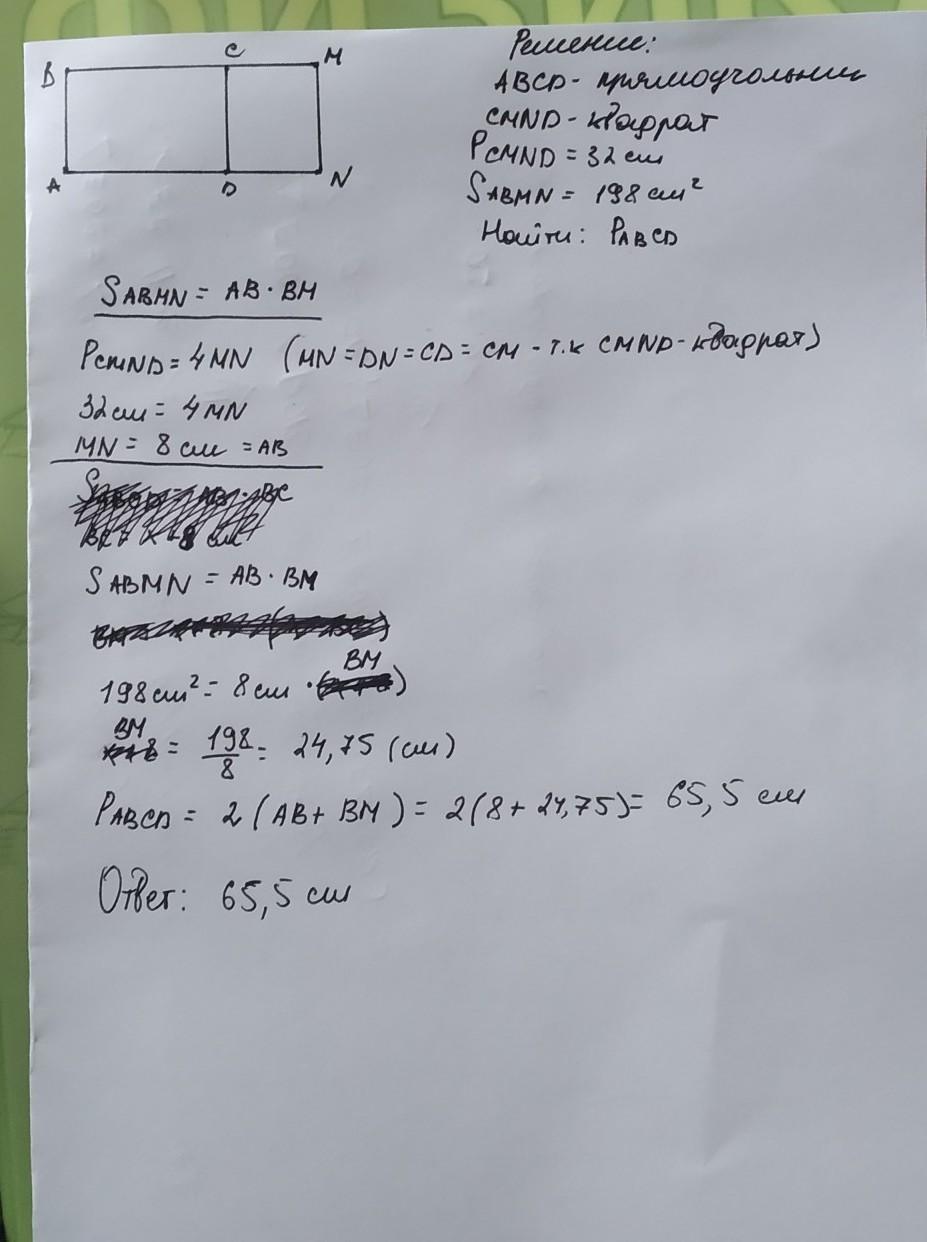 B C M
A D N
Решение:
ABCD - прямоугольник
CMND - квадрат
PCMND = 32 см
SABMN = 198 см²
Найти: PABCD
SABMN = AB · BM
PCMND = 4MN (MN = DN = CD = CM - т.к CMND - квадрат)
32 см = 4 MN
MN = 8 см = AB
SABMN = AB · BM
198 см² = 8 см · BM )
BM = 198/8 = 24,75 (см)
PABCD = 2 (AB + BM) = 2(8 + 24,75) = 65,5 см
Ответ: 65,5 см